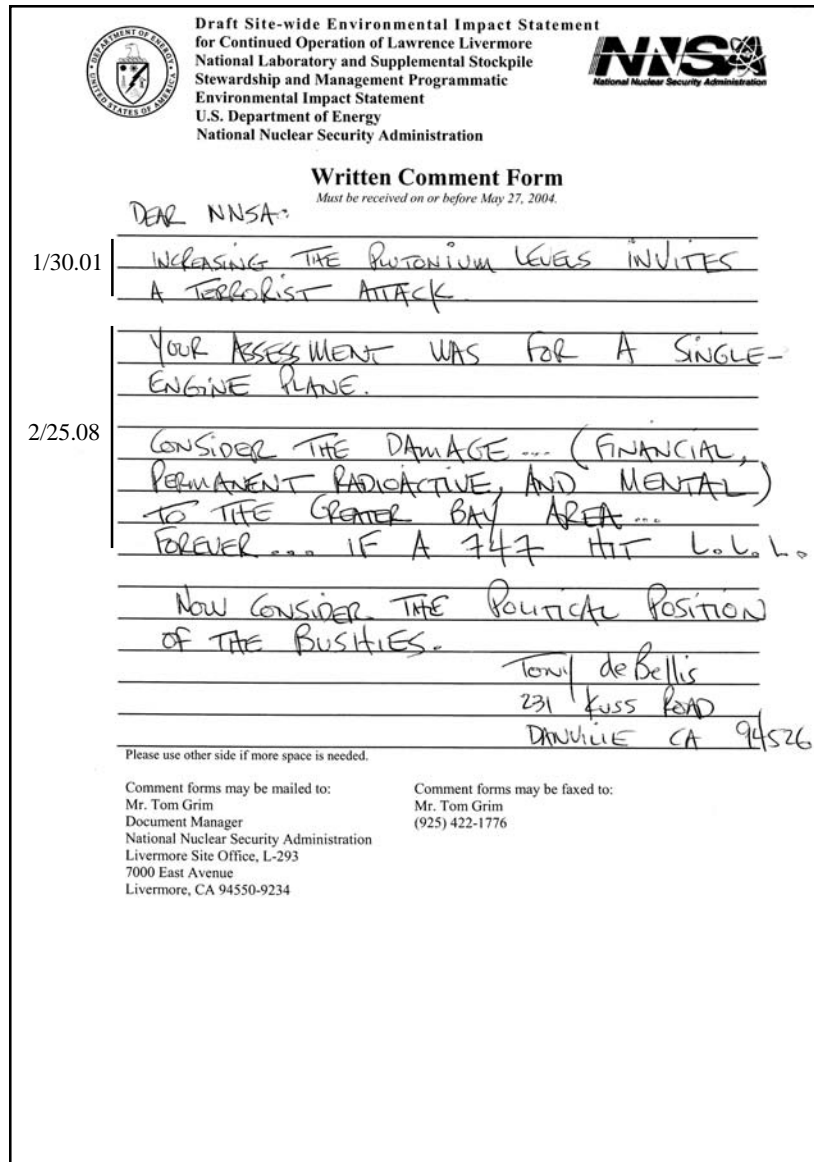 Draft Site-wide Environmental Impact Statement
for Continued Operation of Lawrence Livermore
National Laboratory and Supplemental Stockpile
Stewardship and Management Programmatic
Environmental Impact Statement
U.S. Department of Energy
National Nuclear Security Administration
DEPARTMENT OF ENERGY
UNITED STATES OF AMERICA
NNSA
National Nuclear Security Administration
Written Comment Form
Must be received on or before May 27, 2004.
DEAR NNSA:
1/30.01
INCREASING THE PLUTONIUM LEVELS INVITES
A TERRORIST ATTACK.
YOUR ASSESSMENT WAS FOR A SINGLE-
ENGINE PLANE.
2/25.08
CONSIDER THE DAMAGE... (FINANCIAL,
PERMANENT RADIOACTIVE, AND MENTAL)
TO THE GREATER BAY AREA...
FOREVER... IF A 747 HIT L.L.L.
NOW CONSIDER THE POLITICAL POSITION
OF THE BUSHIES.
Tony deBellis
231 KUSS ROAD
DANVILLE CA 94526
Please use other side if more space is needed.
Comment forms may be mailed to:
Mr. Tom Grim
Document Manager
National Nuclear Security Administration
Livermore Site Office, L-293
7000 East Avenue
Livermore, CA 94550-9234
Comment forms may be faxed to:
Mr. Tom Grim
(925) 422-1776